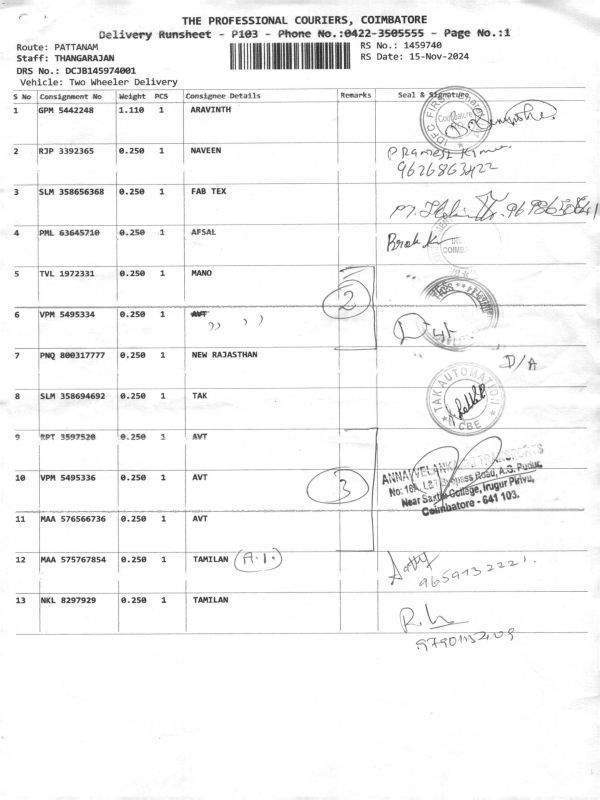 THE PROFESSIONAL COURIERS, COIMBATORE
Delivery Runsheet - P103 - Phone No.:0422-3505555 - Page No.:1
Route: PATTANAM
RS No.: 1459740
Staff: THANGARAJAN
RS Date: 15-Nov-2024
DRS No.: DCJB145974001
Vehicle: Two Wheeler Delivery
S No Consignment No Weight PCS Consignee Details Remarks Seal & Signature
1 GPM 5442248 1.110 1 ARAVINTH
2 RJP 3392365 0.250 1 NAVEEN
9626863422
3 SLM 358656368 0.250 1 FAB TEX
4 PML 63645710 0.250 1 AFSAL
5 TVL 1972331 0.250 1 MANO
2
6 VPM 5495334 0.250 1 AVT
,, ,,
7 PNQ 800317777 0.250 1 NEW RAJASTHAN D/A
8 SLM 358694692 0.250 1 TAK
TAK AUTOMATION
CBE
9 RPT 3597520 0.250 1 AVT
10 VPM 5495336 0.250 1 AVT
3
Near Saxthi College, Irugur Pirivu,
Coimbatore - 641 103.
11 MAA 576566736 0.250 1 AVT
12 MAA 575767854 0.250 1 TAMILAN (A.I.)
9659132221.
13 NKL 8297929 0.250 1 TAMILAN